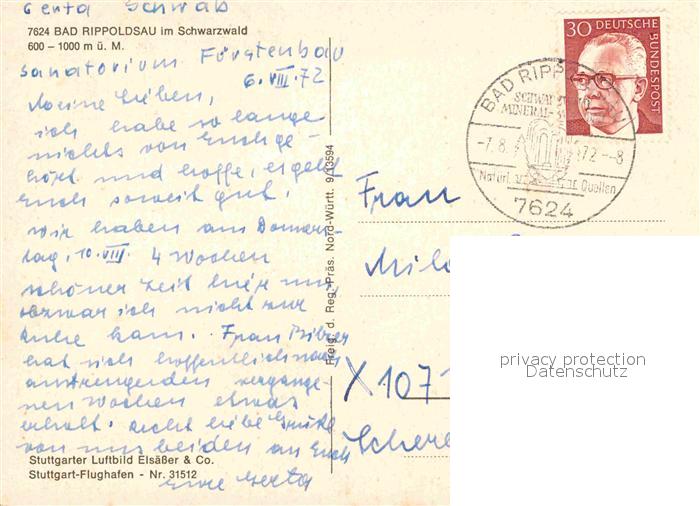 Genta Schwab
7624 BAD RIPPOLDSAU im Schwarzwald
600 – 1000 m ü. M.
Sanatorium Fürstenbau
6. VIII. 72
Meine Lieben,
ich habe so lange
nichts von Euch ge-
hört und hoffe, es geht
Euch soweit gut.
Wir haben am Donners-
tag, 10. VIII. 4 Wochen
schöner Zeit hier um,
obzwar ich nicht zur
Ruhe kam. Frau
hat sich hoffentlich nach
anstrengenden vergange-
nen Wochen etwas
erholt. Recht liebe Grüße
von uns beiden an Euch
Eure
Stuttgarter Luftbild Elsäßer & Co.
Stuttgart-Flughafen - Nr. 31512
Freig. d. Reg. Präs. Nord-Württ. 9/13594
30 DEUTSCHE BUNDESPOST
BAD RIPPOLDSAU
MINERAL-
-7.8. 72 --8
Quellen
7624
Frau
X 107
Schere
privacy protection
Datenschutz